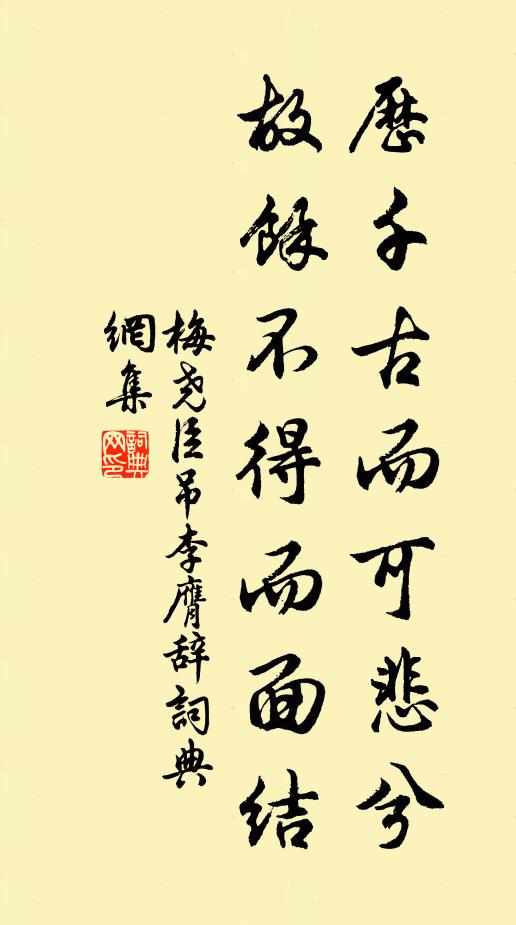 歷千古而可悲兮
故餘不得而面結
梅堯臣吊李膺辞詞典
網集
詞典網印